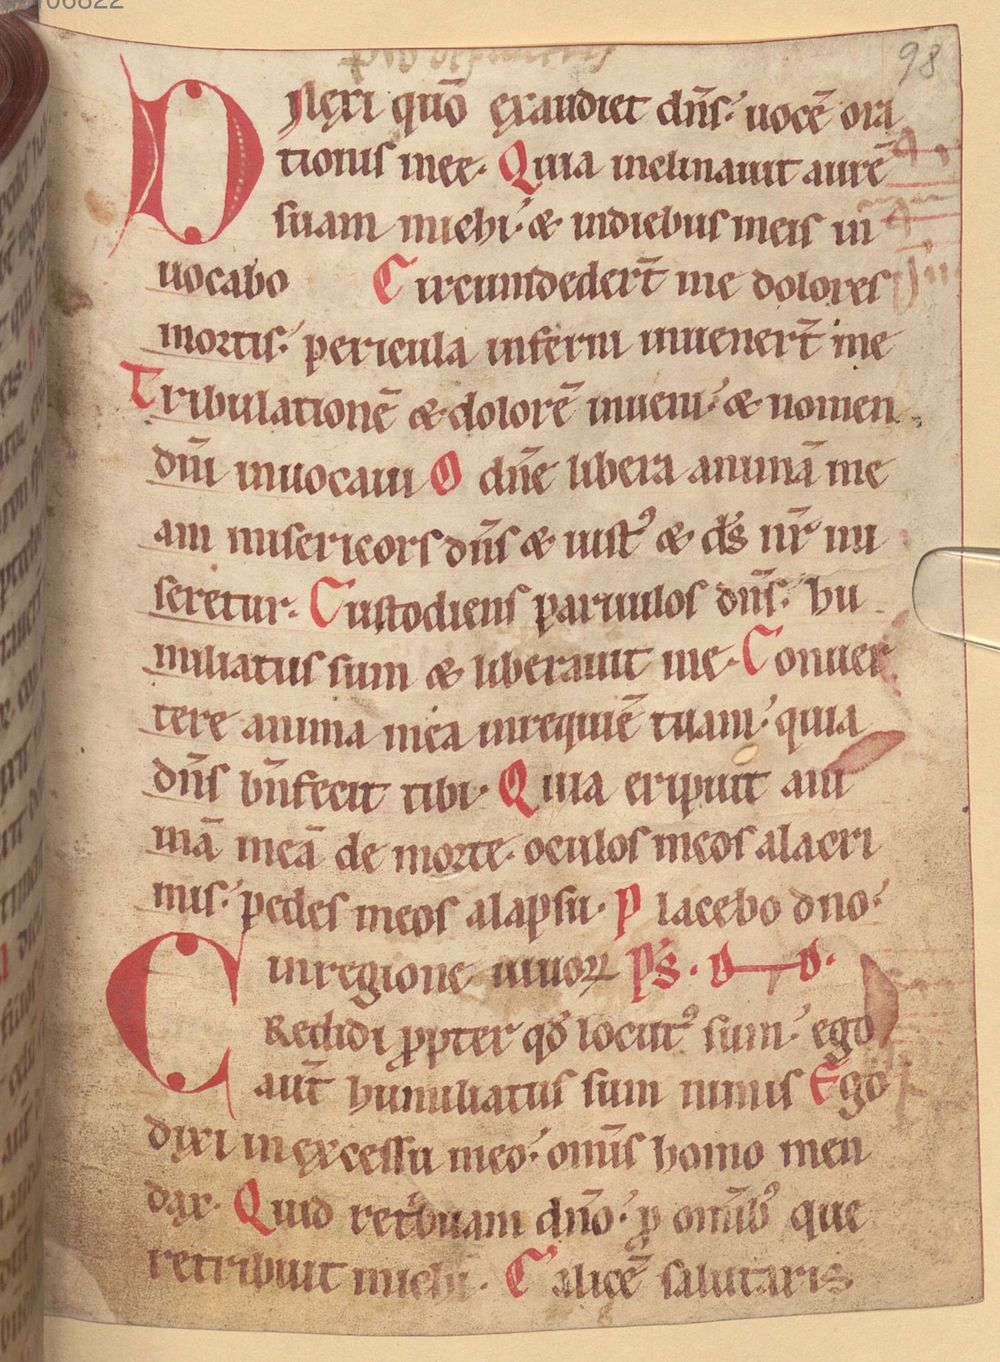 98
Dilexi quō exaudiet dn̄s uocē ora
tionis mee. Quia inclinauit aurē
suam michi & indiebus meis in
uocabo Circumdedert̄ me dolores
mortis. pericula inferni inuenert̄ me
Tribulationē & dolorē inueni & nomen
dn̄i inuocaui O dn̄e libera animā me
am misericors dn̄s & iustꝰ & ds̄ nr̄ mi
seretur. Custodiens paruulos dn̄s. hu
miliatus sum & liberauit me. Conuer
tere anima mea inrequiē tuam quia
dn̄s bn̄fecit tibi. Quia eripuit ani
mā meā de morte. oculos meos alacri
mis. pedes meos alapsu. Placebo dno.
inregione uiuoꝝ ps̄. d d.
CRedidi ꝓpter qd̄ locutꝰ sum. ego
aut̄ humiliatus sum nimis Ego
dixi in excessu meo. omīs homo men
dax. Quid ret̄buam dn̄o. ꝓ omībꝰ que
retribuit michi. Calicē salutaris